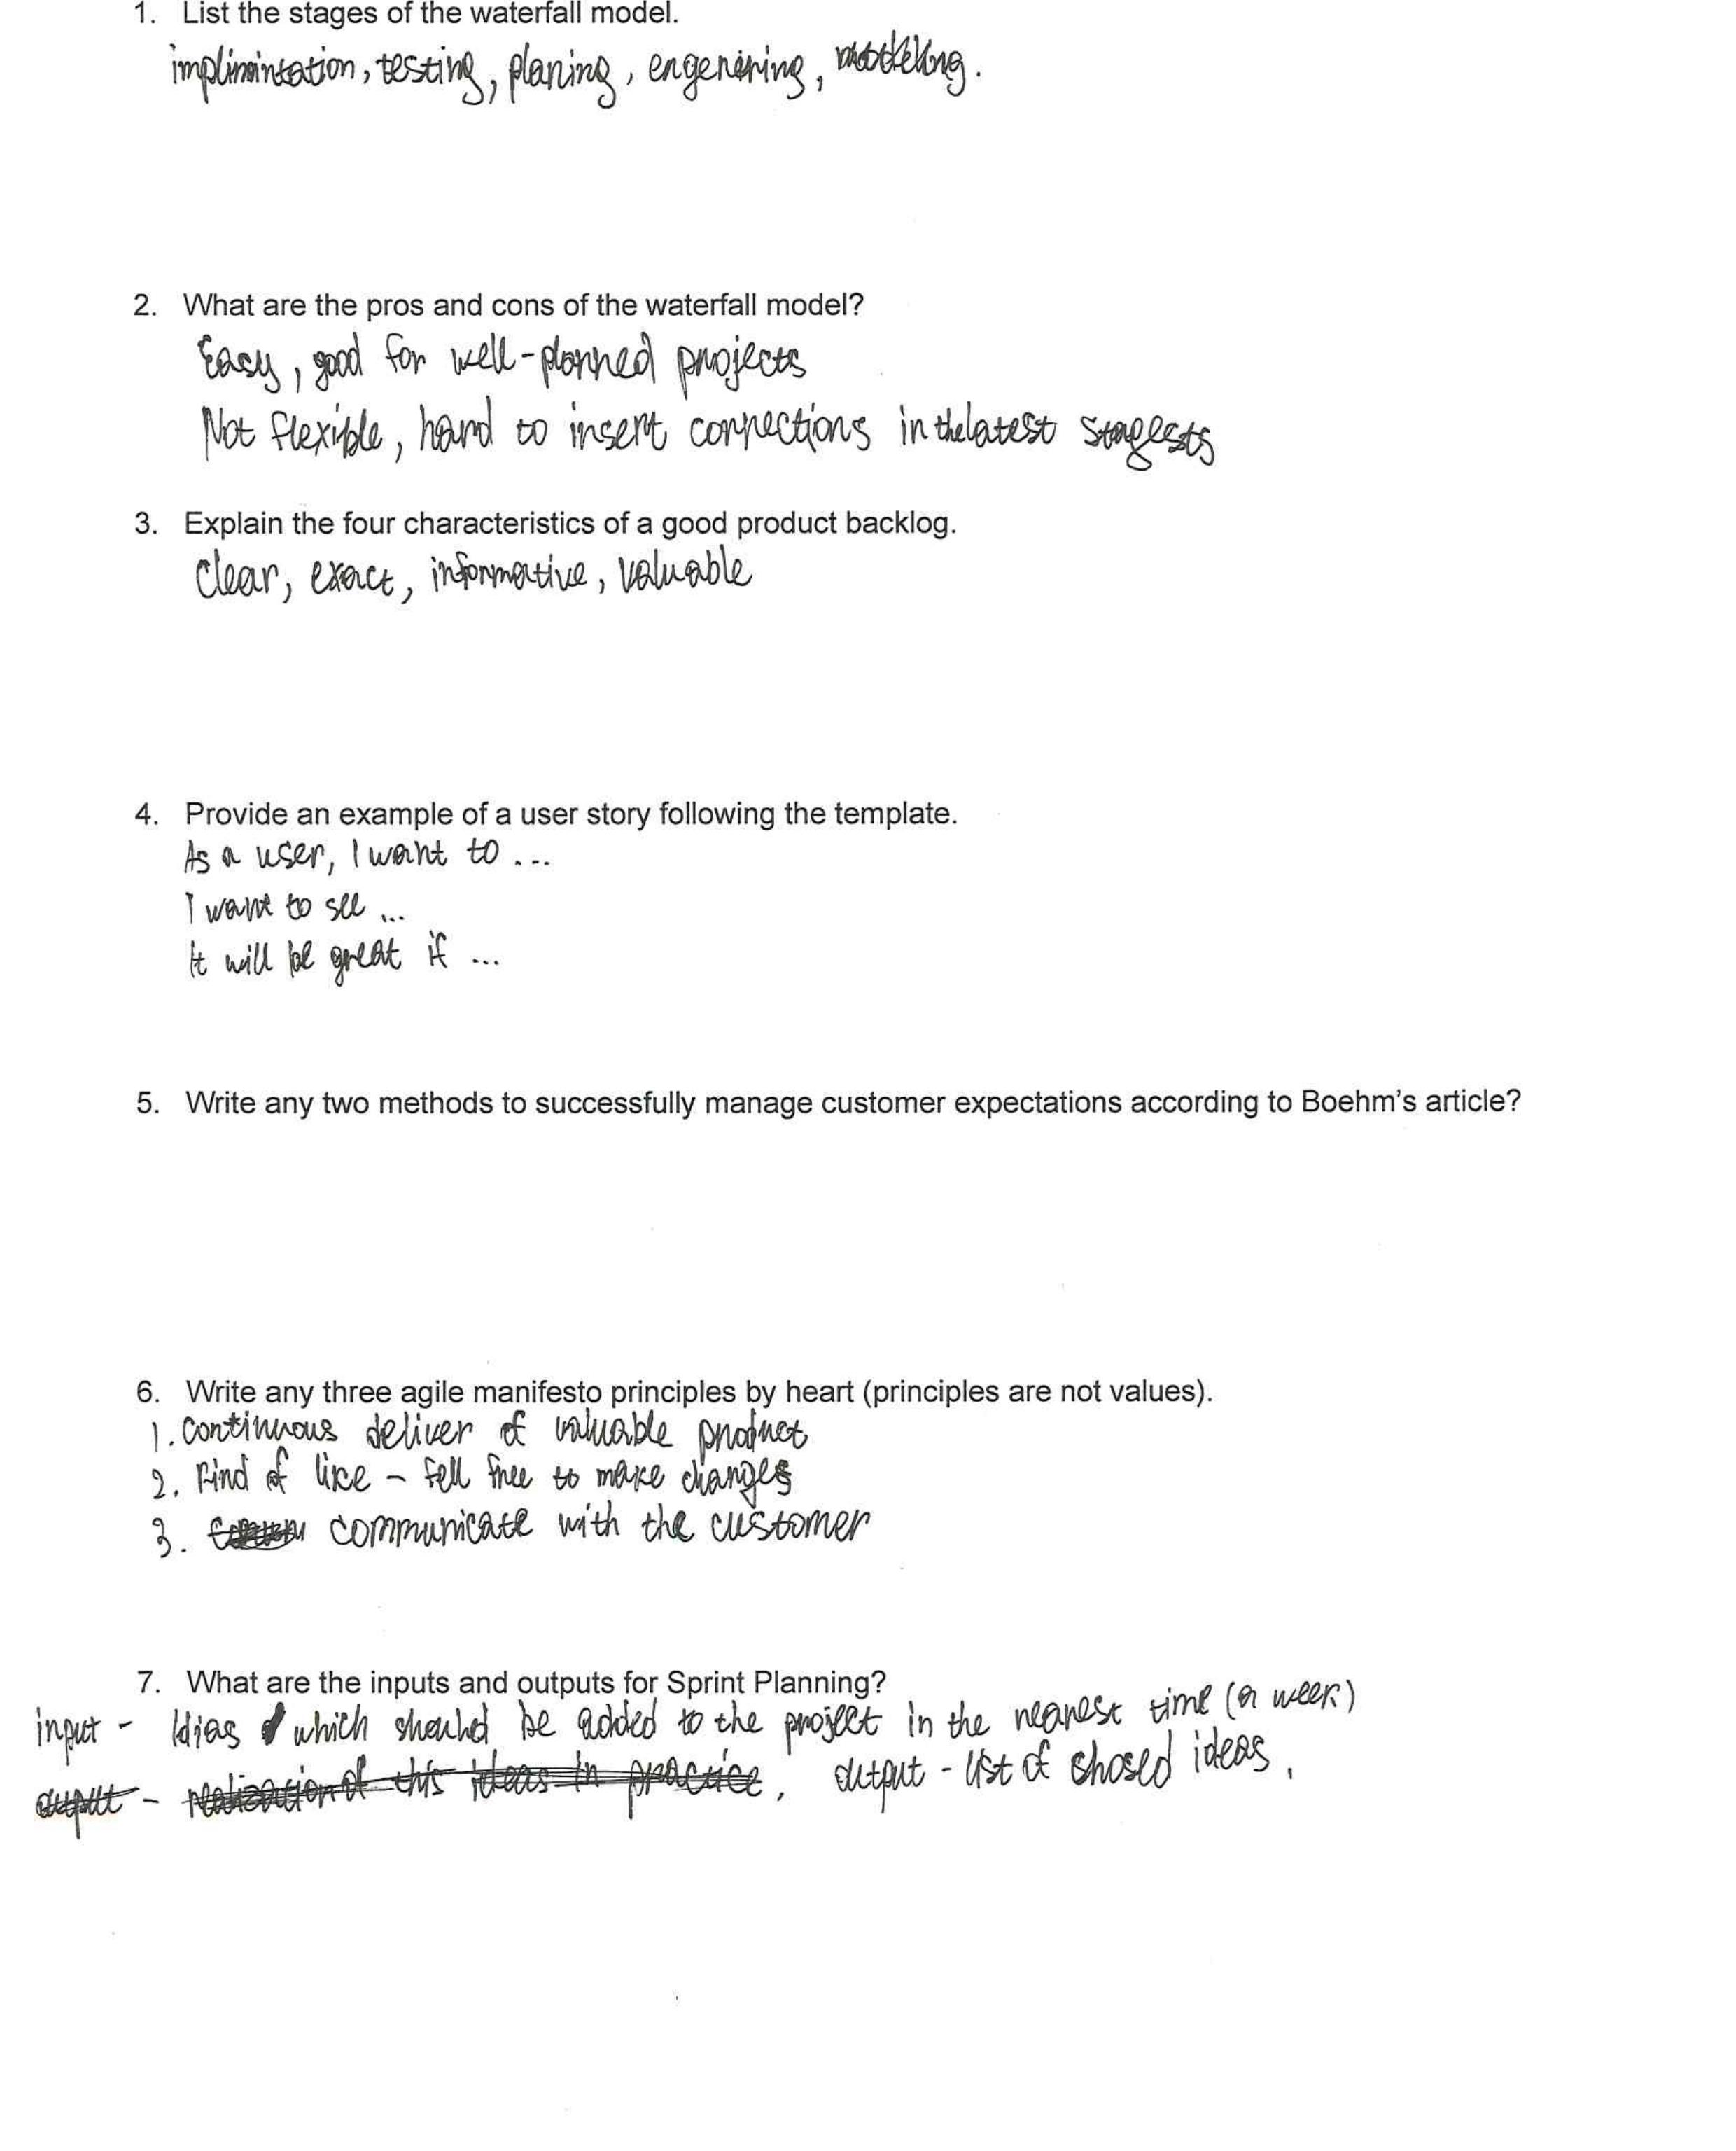 1. List the stages of the waterfall model.
implimintation, testing, planing, engenering, modeling.
2. What are the pros and cons of the waterfall model?
Easy, good for well-planned projects
Not flexible, hard to insert corrections in the latest
3. Explain the four characteristics of a good product backlog.
clear, exact, informative, valuable
4. Provide an example of a user story following the template.
As a user, I want to ...
I want to see ...
It will be great if ...
5. Write any two methods to successfully manage customer expectations according to Boehm's article?
6. Write any three agile manifesto principles by heart (principles are not values).
1. continuous deliver of valuable product
2. Kind of like - fell free to make changes
3. communicate with the customer
7. What are the inputs and outputs for Sprint Planning?
input - Idias which should be added to the project in the nearest time (a week)
output - realization of this ideas in practice, output - list of chosed ideas.